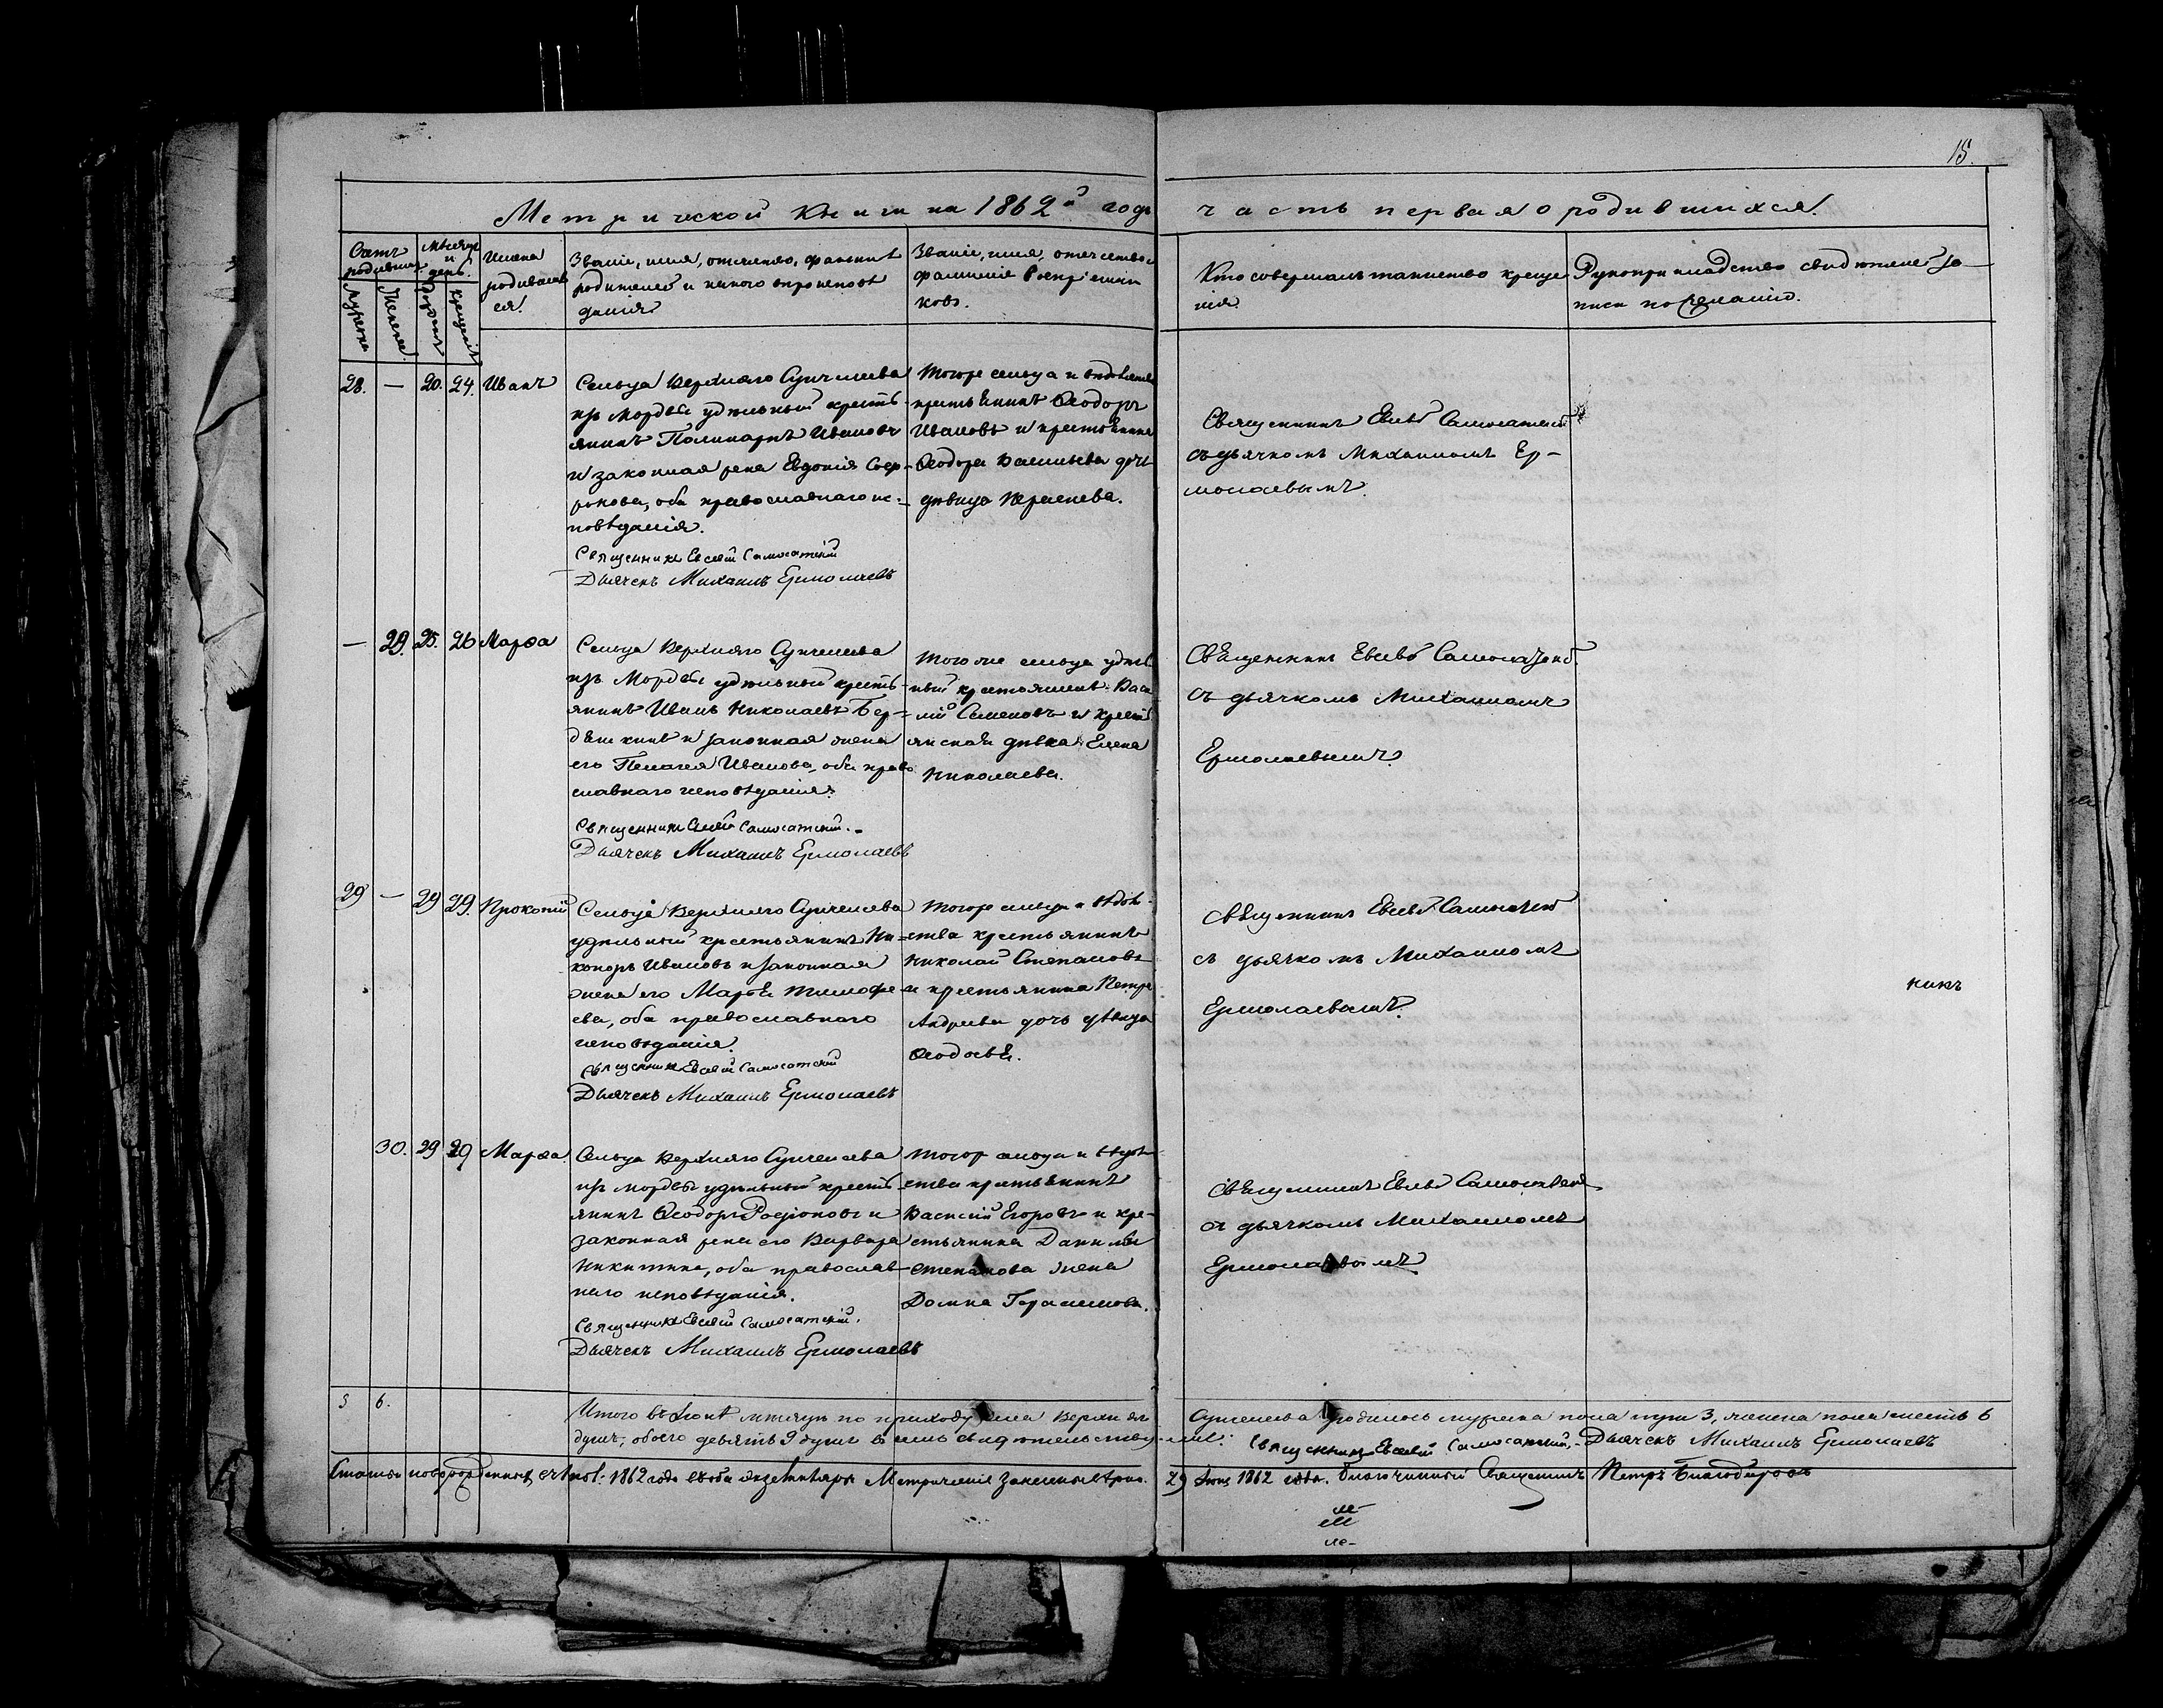 15.
Метрической книги на 1862й годъ
часть первая о родившихся.
Счетъ родившихся
Мѣсяцъ и день.
Имена родившихся.
Званіе, имя, отчество, фамилія родителей и какого вѣроисповѣданія
Званіе, имя, отчество и фамилія воспріемниковъ.
Кто совершалъ таинство крещенія
Рукоприкладство свидѣтелей записи по желанію.
Мужеска
Женска
Рожденія
Крещенія
28. — 20. 24. Иванъ
Сельца Верхняго Сунчелеева
изъ Мордвы удѣльный кресть-
янинъ Поликарпъ Ивановъ
и законная жена Евдокія Соф-
ронова, оба православнаго ис-
повѣданія.
Священникъ Евсей Самосатскій
Дьячекъ Михаилъ Ермолаевъ
Тогоже сельца и вѣдомства
крестьянинъ Ѳеодоръ
Ивановъ и крестьянина
Ѳеодора Васильева дочь
дѣвица
Священникъ Евсей Самосатскій
съ дьячкомъ Михаиломъ Ер-
молаевымъ.
— 29. 25. 26 Марѳа
Сельца Верхняго Сунчелеева
изъ Мордвы удѣльный кресть-
янинъ Иванъ Николаевъ Бер-
дышкинъ и законная жена
его Пелагея Иванова, оба право
славнаго исповѣданія.
Священникъ Евсей Самосатскій.
Дьячекъ Михаилъ Ермолаевъ
Тогоже сельца удѣль
ный крестьянинъ Васи
лій Семеновъ и кресть
янская дѣвка Елена
Николаева.
Священникъ Евсей Самосатскій
съ дьячкомъ Михаиломъ
Ермолаевымъ.
29 — 29 29. Прокопій
Сельца Верхняго Сунчелеева
удѣльный крестьянинъ Ни-
коноръ Ивановъ и законная
жена его Марья Тимофе
ева, оба православнаго
исповѣданія.
Священникъ Евсей Самосатскій
Дьячекъ Михаилъ Ермолаевъ
Тогоже сельца и вѣдом-
ства крестьянинъ
Николай Степановъ
и крестьянина Петра
Андреева дочь дѣвица
Ѳеодосья.
Священникъ Евсей Самосатскій
съ дьячкомъ Михаиломъ
Ермолаевымъ.
никъ
30. 29 29 Марѳа.
Сельца Верхняго Сунчелеева
изъ мордвы удѣльный кресть-
янинъ Ѳеодоръ Родіоновъ и
законная жена его Варвара
Никитина, оба православ
наго исповѣданія.
Священникъ Евсей Самосатскій.
Дьячекъ Михаилъ Ермолаевъ
Тогоже сельца и вѣдом
ства крестьянинъ
Василій Егоровъ и кре-
стьянина Данилы
Степанова жена
Домна Герасимова.
Священникъ Евсей Самосатскій
съ дьячкомъ Михаиломъ
Ермолаевымъ
3 6.
Итого въ Іюнѣ мѣсяцѣ по приходу села Верхняго Сунчелеева родилось мужеска пола три 3, женска пола шесть 6
душъ, обоего девять 9 душъ въ чемъ свидѣтельствуемъ: Священникъ Евсей Самосатскій. Дьячекъ Михаилъ Ермолаевъ
1862 года въ оба экземпляра 29 Іюня 1862 года. Благочинный Священникъ Петръ